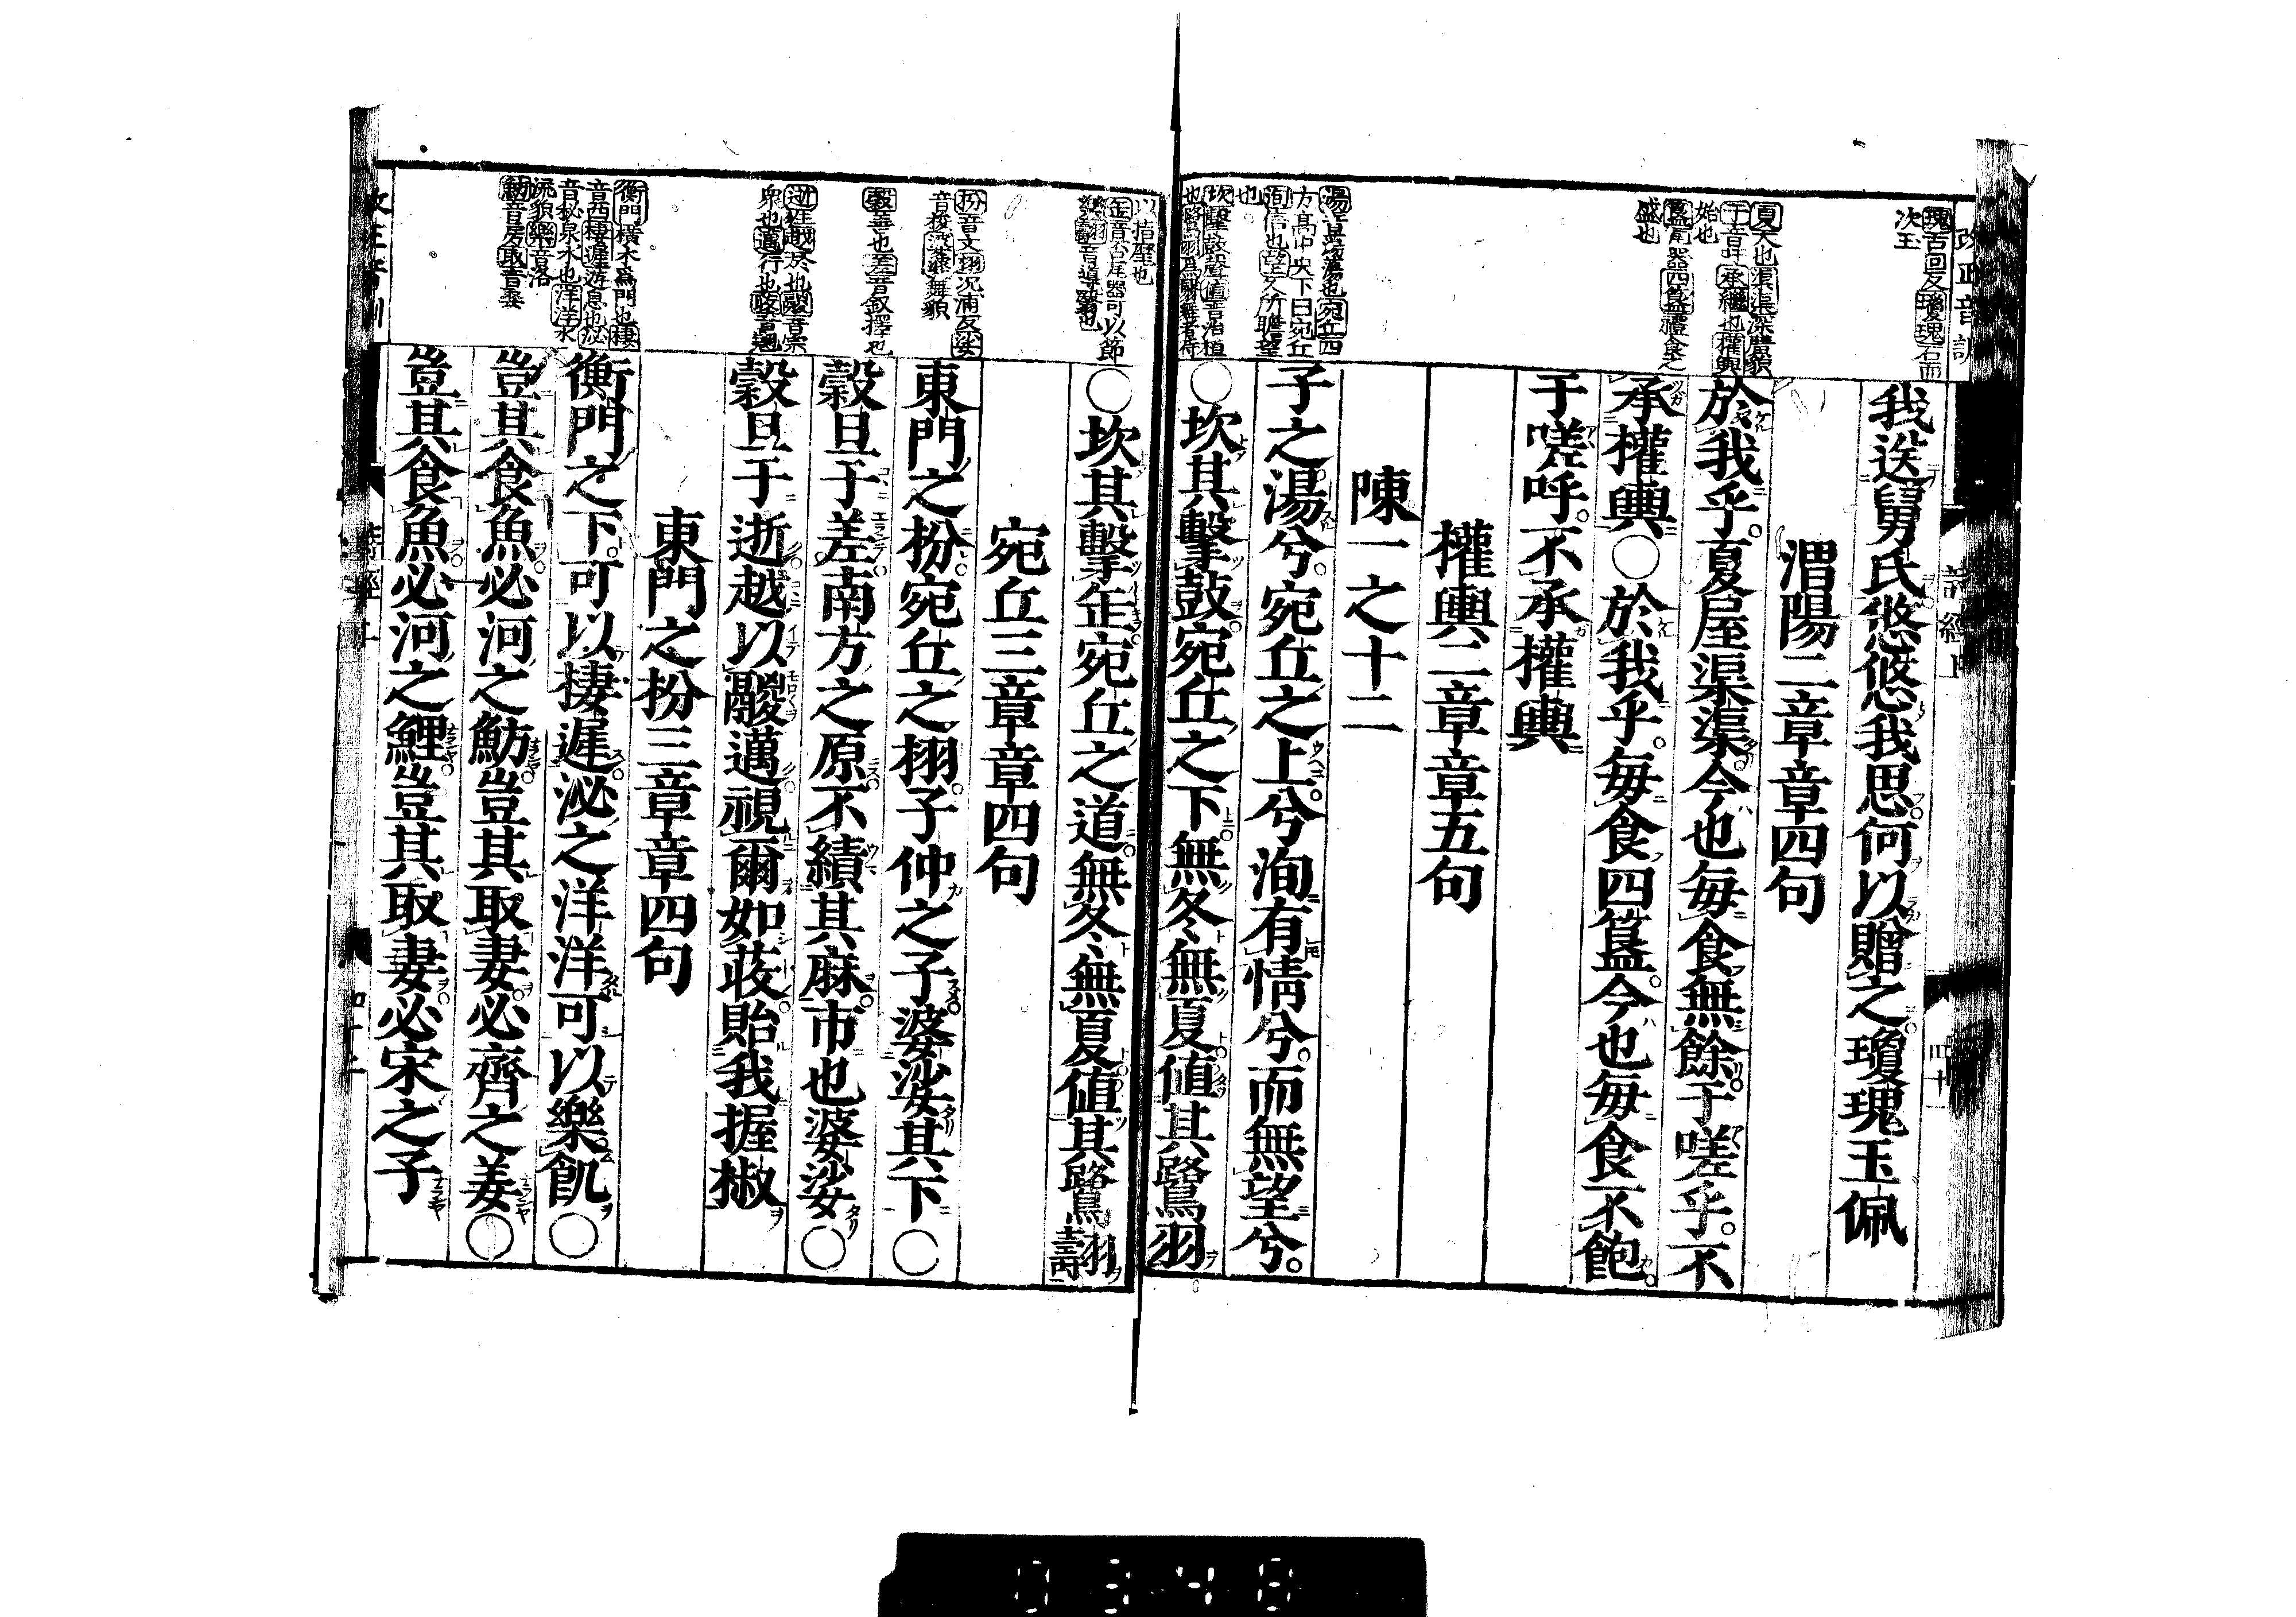 我送舅氏悠悠我思何以贈之瓊瑰玉佩
渭陽二章章四句
於我乎夏屋渠渠今也每食無餘于嗟乎不
承權輿○於我乎每食四簋今也每食不飽
于嗟呼不承權輿
權輿二章章五句
陳一之十二
子之湯兮宛丘之上兮洵有情兮而無望兮
○坎其擊鼓宛丘之下無冬無夏值其鷺羽
○坎其擊缶宛丘之道無冬無夏值其鷺翿
宛丘三章章四句
東門之枌宛丘之栩子仲之子婆娑其下○
穀旦于差南方之原不績其麻市也婆娑○
穀旦于逝越以鬷邁視爾如荍貽我握椒
東門之枌三章章四句
衡門之下可以棲遲泌之洋洋可以樂飢○
豈其食魚必河之魴豈其取妻必齊之姜○
豈其食魚必河之鯉豈其取妻必宋之子
瑰古回反瓊瑰石而
次玉
夏大也渠渠深廣貌
于音吁承繼也權輿
始也
簋瓦器四簋禮食之
盛也
湯蕩也宛丘四
方高中央下曰宛丘
洵信也望人所瞻望
也
坎擊鼓聲值音治植
以指麾也
缶音否瓦器可以節
樂翿音導翳也
枌音文栩況浦反婆
音梭婆娑舞貌
穀善也差音釵擇也
逝往越於也鬷音宗
衆也邁行也荍音翹
衡門橫木爲門也棲
音西棲遲遊息也泌
音祕泉水也洋洋水
流貌樂音洛
魴音房取音娶
改正音訓
詩經上
四十
0348